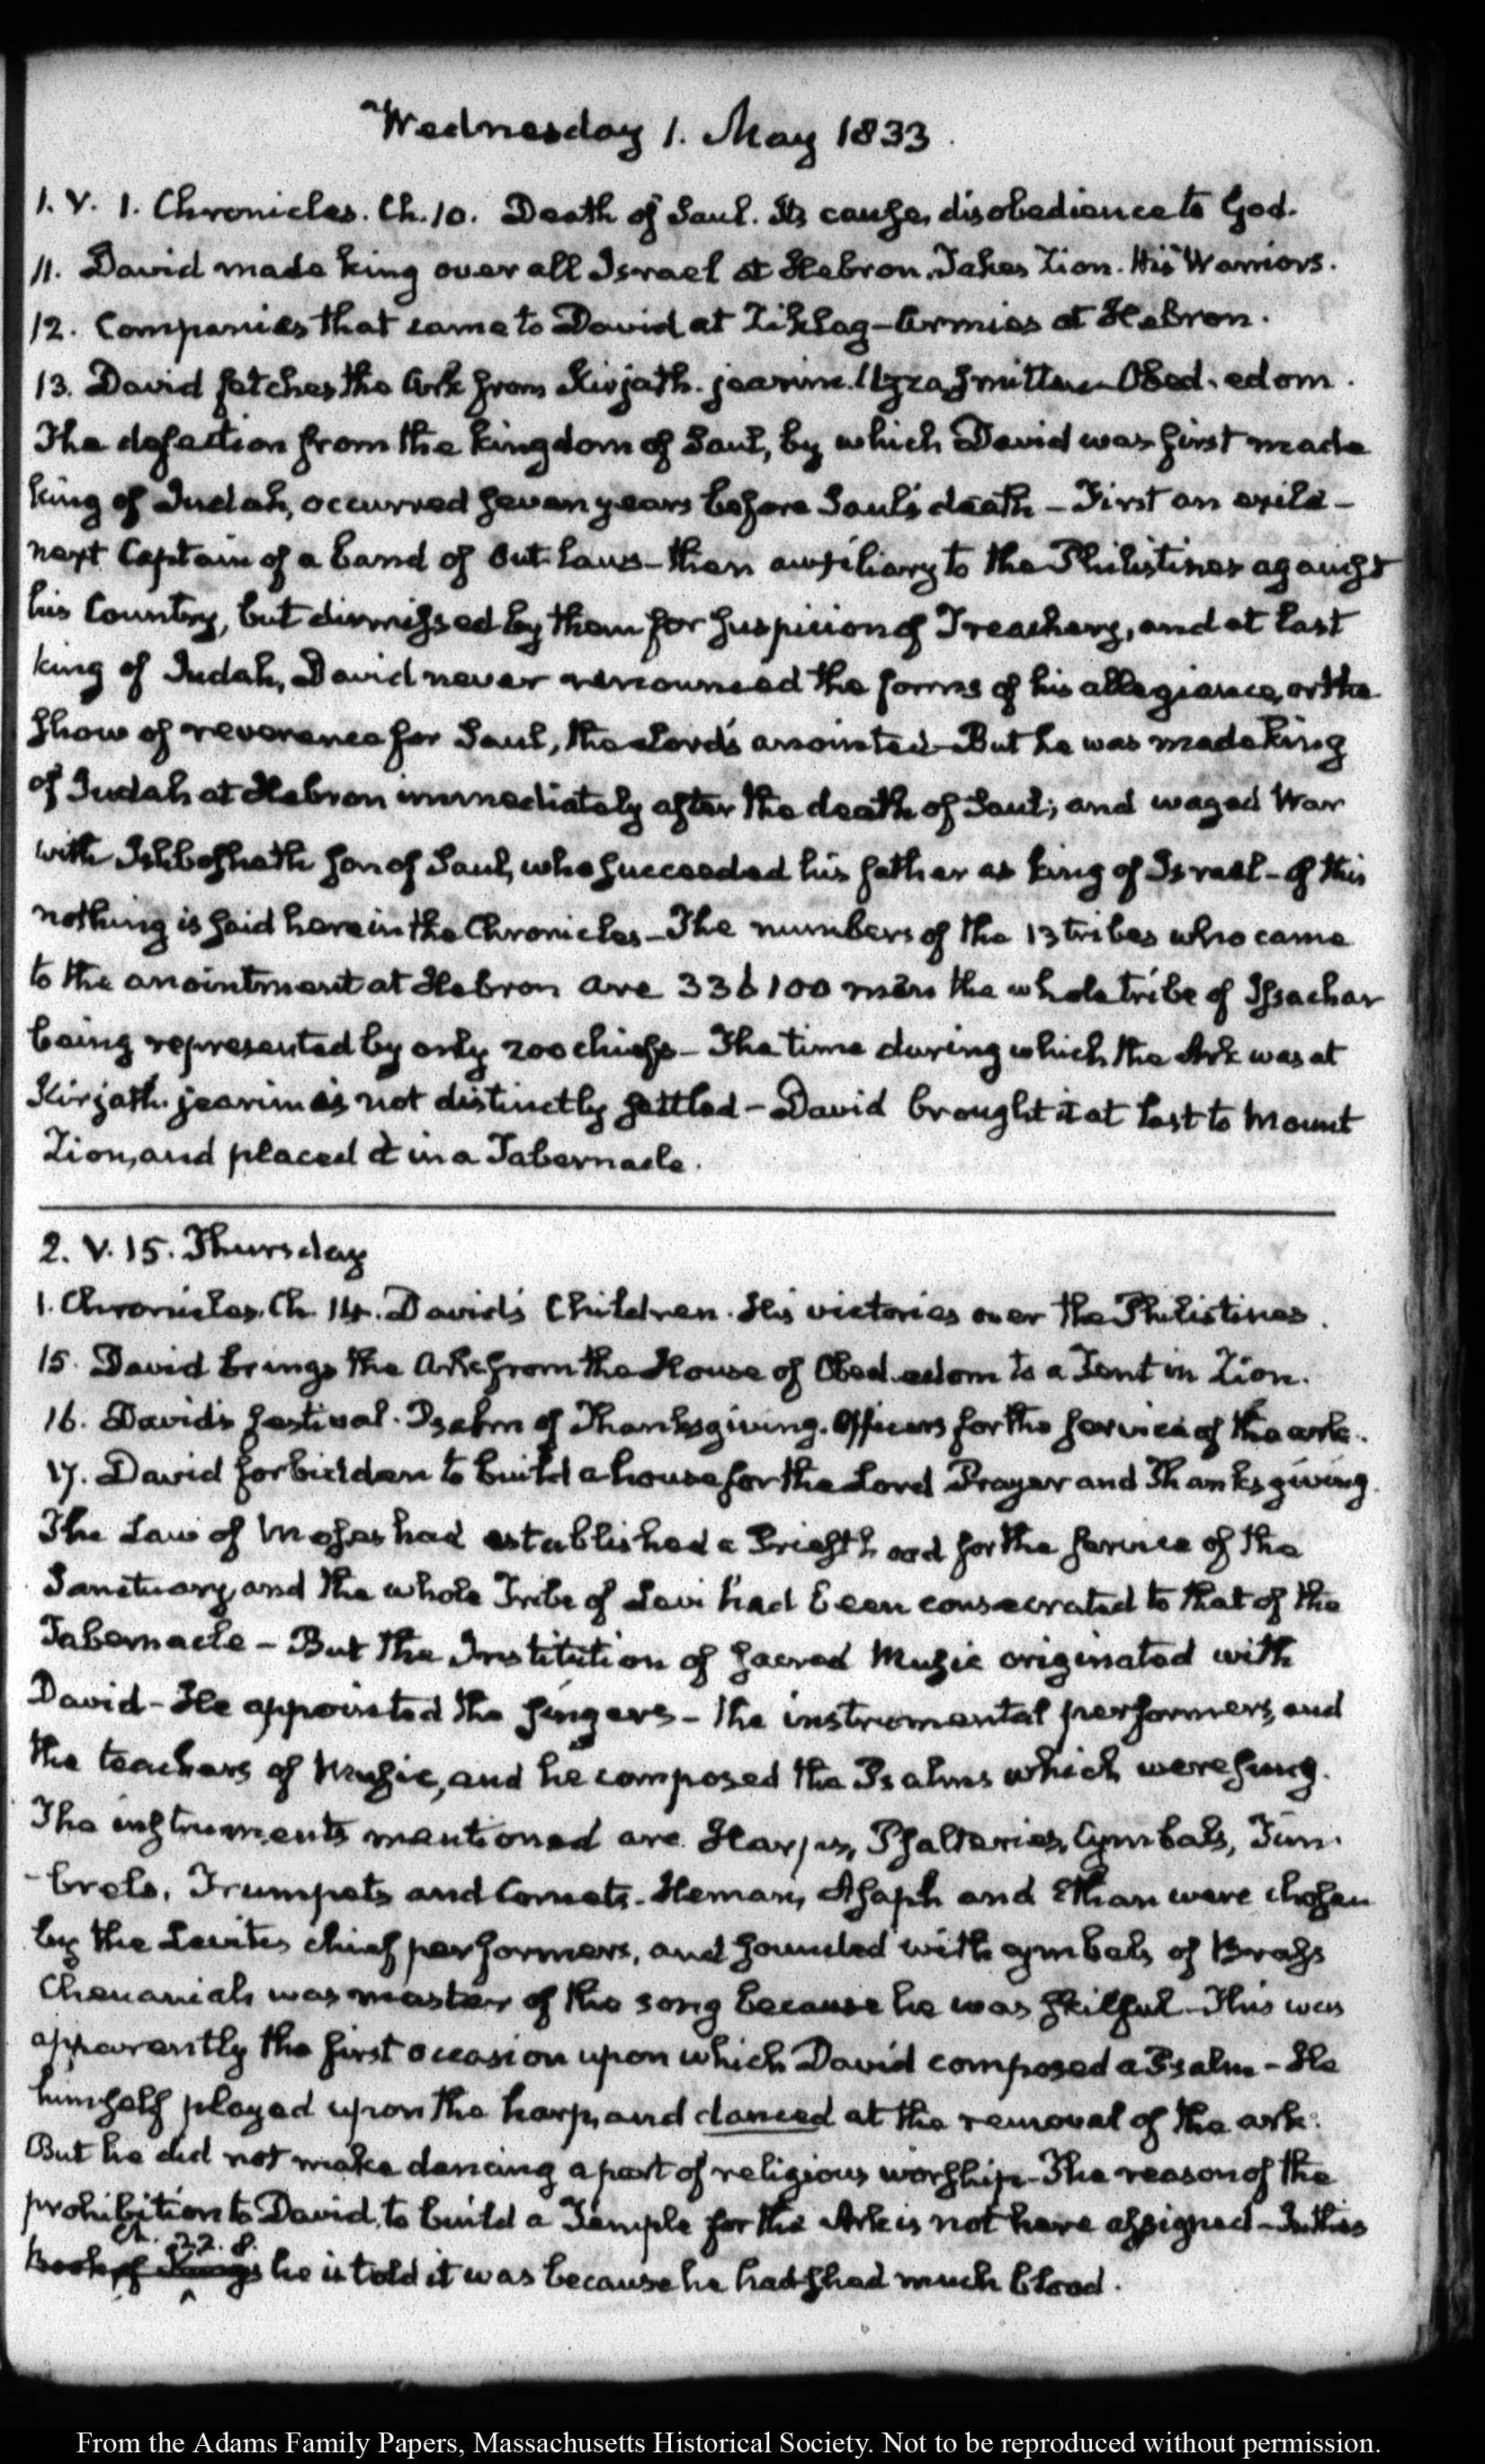 Wednesday 1. May 1833.
1. V. 1. Chronicles. Ch. 10. Death of Saul. Its cause, disobedience to God.
11. David made king over all Israel at Hebron. Takes Zion. His Warriors.
12. Companies that came to David at Ziklag—Armies at Hebron.
13. David fetches the Ark from Kirjath-jearim. Uzza smitten—Obed-edom.
The defection from the kingdom of Saul, by which David was first made
king of Judah, occurred seven years before Saul's death—First an exile—
next Captain of a band of Outlaws—then auxiliary to the Philistines against
his Country, but dismissed by them for suspicion of Treachery, and at last
king of Judah, David never renounced the forms of his allegiance, or the
show of reverence for Saul, the Lord's anointed—But he was made king
of Judah at Hebron immediately after the death of Saul; and waged War
with Ishbosheth son of Saul, who succeeded his father as king of Israel—of this
nothing is said here in the Chronicles—The numbers of the 13 tribes who came
to the anointment at Hebron are 336100 men the whole tribe of Issachar
being represented by only 200 chiefs—The time during which the Ark was at
Kirjath-jearim is not distinctly settled—David brought it at last to Mount
Zion, and placed it in a Tabernacle.
2. V. 15. Thursday
1. Chronicles. Ch. 14. David's Children. His victories over the Philistines.
15. David brings the Ark from the House of Obed-edom to a Tent in Zion.
16. David's festival. Psalm of Thanksgiving. Officers for the service of the ark.
17. David forbidden to build a house for the Lord Prayer and Thanksgiving.
The Law of Moses had established a Priesthood for the service of the
Sanctuary, and the whole Tribe of Levi had been consecrated to that of the
Tabernacle—But the Institution of sacred Music originated with
David—He appointed the singers—the instrumental performers, and
the teachers of Music, and he composed the Psalms which were sung.
The instruments mentioned are Harps, Psalteries, Cymbals, Tim-
-brels, Trumpets and Cornets. Heman, Asaph and Ethan were chosen
by the Levites chief performers, and sounded with cymbals of Brass
Chenaniah was master of the song because he was skilful—This was
apparently the first occasion upon which David composed a Psalm—He
himself played upon the harp, and danced at the removal of the ark.
But he did not make dancing a part of religious worship—The reason of the
prohibition to David, to build a Temple for the Ark is not here assigned—In this
Ch. 22. 8.
Book of Kings he is told it was because he had shed much blood.
From the Adams Family Papers, Massachusetts Historical Society. Not to be reproduced without permission.